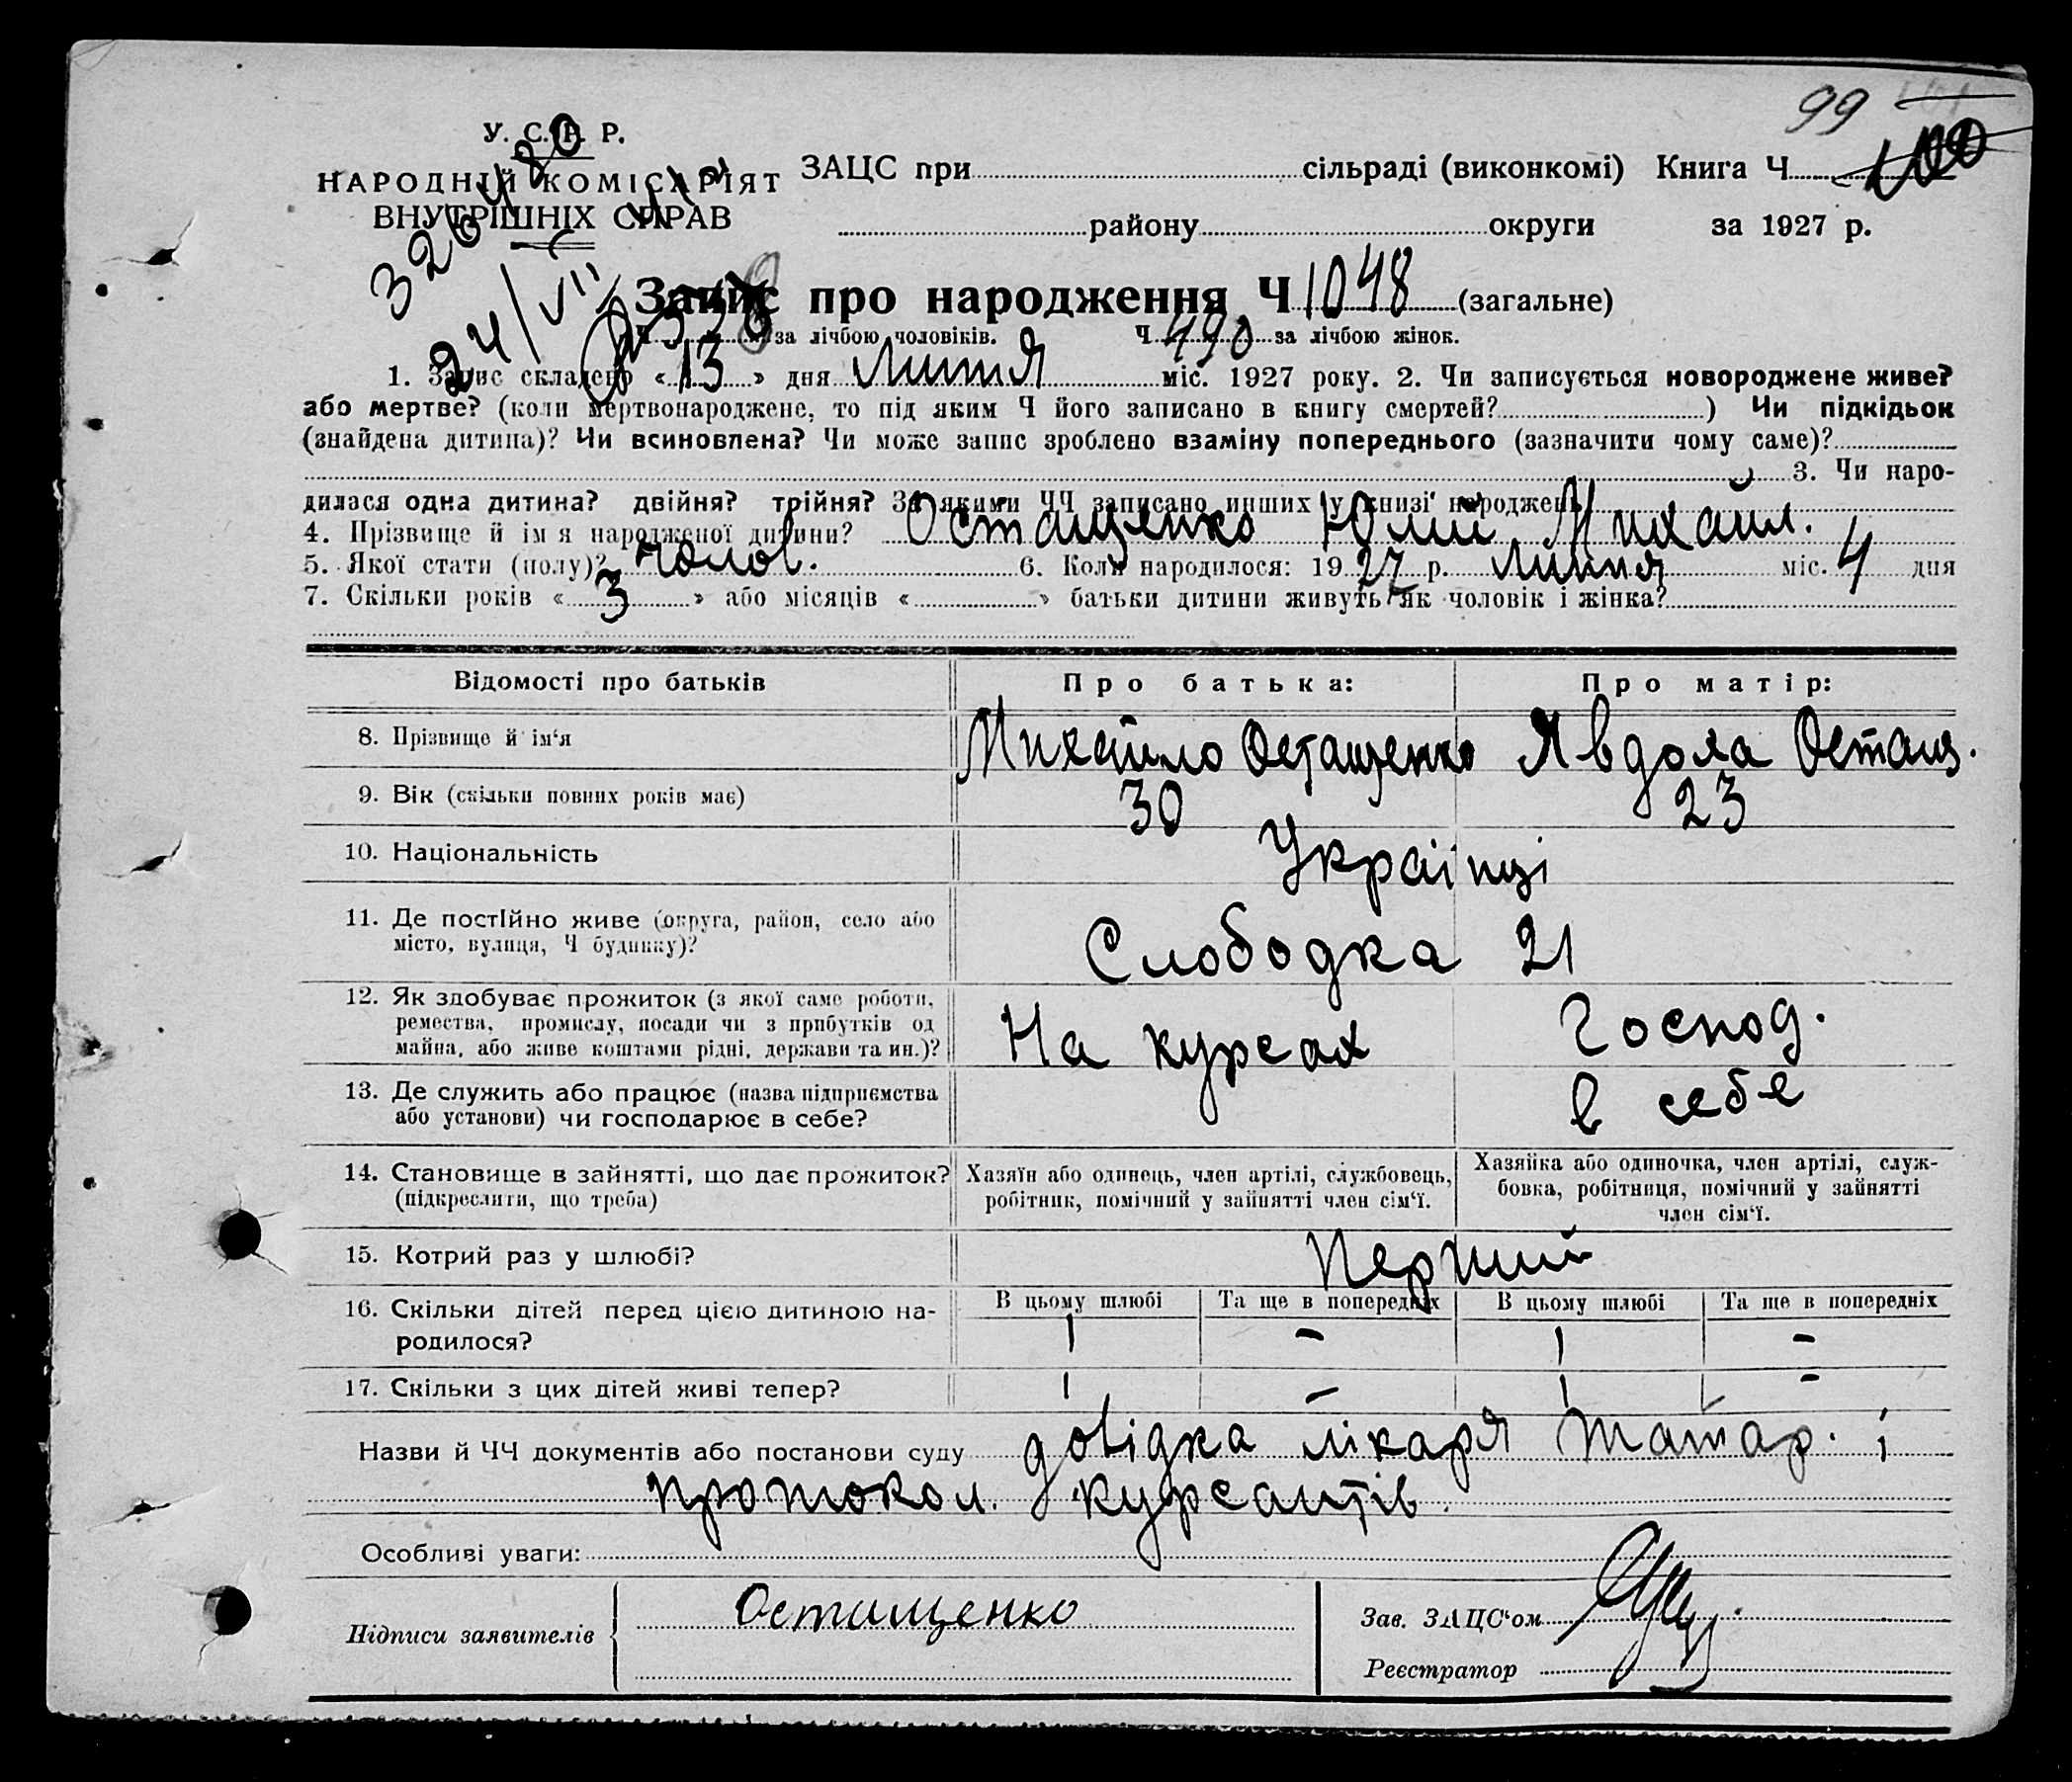 99
У. С. Р. Р.
НАРОДНІЙ КОМІСАРІЯТ
ВНУТРІШНІХ СПРАВ
ЗАЦС при сільраді (виконкомі) Книга Ч 100
району округи за 1927 р.
Запис про народження Ч 1048 (загальне)
за лічбою чоловіків. Ч 490 за лічбою жінок.
1. Запис складено « 13 » дня липня міс. 1927 року. 2. Чи записується новороджене живе?
або мертве? (коли мертвонароджене, то під яким Ч його записано в книгу смертей? ) Чи підкідьок
(знайдена дитина)? Чи всиновлена? Чи може запис зроблено взаміну попереднього (зазначити чому саме)?
3. Чи наро-
дилася одна дитина? двійня? трійня? За якими ЧЧ записано инших у книзі народжень
4. Прізвище й ім я народженої дитини? Остащенко Юлій Михайл.
5. Якої стати (полу)? чолов. 6. Коли народилося: 1927 р. липня міс. 4 дня
7. Скільки років « 3 » або місяців « » батьки дитини живуть як чоловік і жінка?
Відомості про батьків Про батька: Про матір:
8. Прізвище й ім‘я Михайло Остащенко Явдоха Остащ.
9. Вік (скільки повних років має) 30 23
10. Національність Українці
11. Де постійно живе (округа, район, село або
місто, вулиця, Ч будинку)? Слободка 21
12. Як здобуває прожиток (з якої саме роботи,
ремества, промислу, посади чи з прибутків од
майна, або живе коштами рідні, держави та ин.)? На курсах Господ.
13. Де служить або працює (назва підприємства
або установи) чи господарює в себе? в себе
14. Становище в зайнятті, що дає прожиток?
(підкреслити, що треба)
Хазяїн або одинець, член артілі, службовець,
робітник, помічний у зайнятті член сім‘ї.
Хазяйка або одиночка, член артілі, служ-
бовка, робітниця, помічний у зайнятті
член сім‘ї.
15. Котрий раз у шлюбі? Перший
16. Скільки дітей перед цією дитиною на-
родилося?
В цьому шлюбі Та ще в попередніх В цьому шлюбі Та ще в попередніх
1 – 1 –
17. Скільки з цих дітей живі тепер? 1 – 1 –
Назви й ЧЧ документів або постанови суду довідка лікаря Татар. і
протокол. курсантів.
Особливі уваги:
Підписи заявителів Остищенко
Зав. ЗАЦС‘ом
Реєстратор